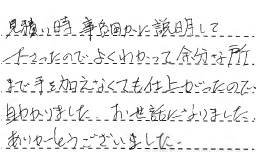 見積り時、事細かに説明して
下さったので、よくわかって余分な所
まで手を加えなくても仕上がったので
助かりました。お世話になりました。
ありがとうございました。